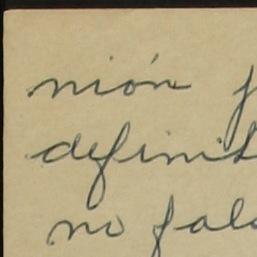 nión
definit
no fals